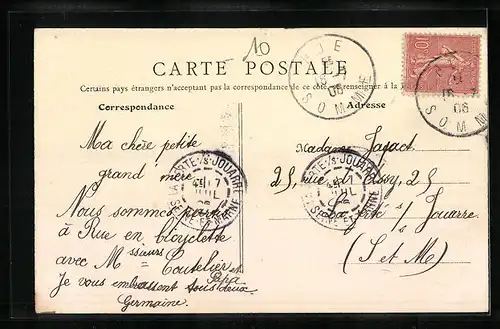 10
CARTE POSTALE
Certains pays étrangers n'acceptant pas la correspondance de ce côté, se renseigner à la
Correspondance
Adresse
Ma chère petite
grand mère
Nous sommes
à Rue en bicyclette
avec Mssieurs Coutelier et
Papa
Je vous embrassent tous deux.
Germaine.
Madame
25, rue de 25
La Ferté s/s Jouarre
(S et M)
RUE
15 7
06
SOMME
RUE
15 7
06
SOMME
LA FERTÉ-S/S-JOUARRE
JUIL
SEINE-ET-MARNE
LA FERTÉ-S/S-JOUARRE
JUIL
SEINE-ET-MARNE
10